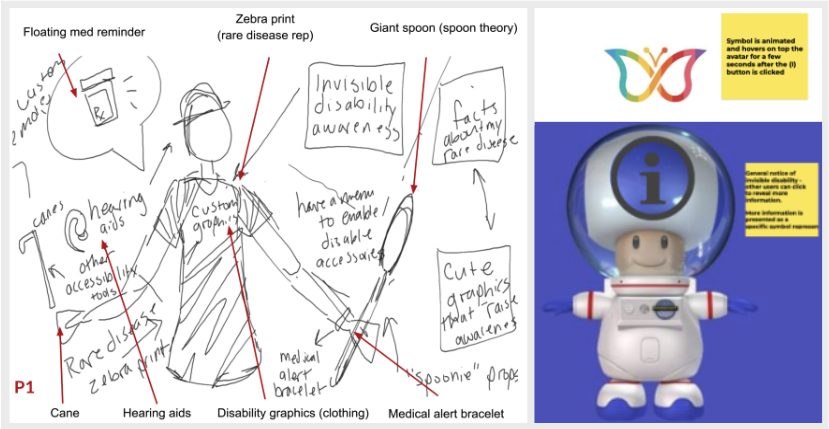 Floating med reminder
Zebra print
(rare disease rep)
Giant spoon (spoon theory)
Rx
Invisible
disability
awareness
facts
about my
rare disease
canes
hearing
aids
Custom
graphics
have a menu
to enable/
disable
accessories
other
accessibility
tools
Cute
graphics
that raise
awareness
Rare disease
zebra print
medical
alert
bracelet
"spoonie" props
P1
Cane
Hearing aids
Disability graphics (clothing)
Medical alert bracelet
Symbol is animated
and hovers on top the
avatar for a few
seconds after the (i)
button is clicked
i
General notice of
invisible disability -
other users can click
to reveal more
information.
More information is
presented as a
specific symbol represen